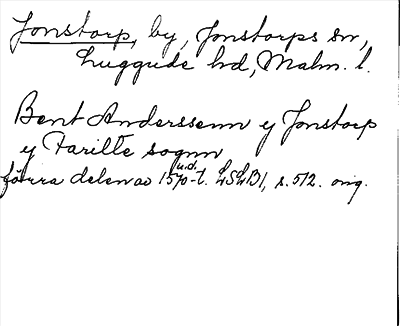 Jonstorp, by, Jonstorps sn,
Luggude hd, Malm. l.
Bent Anderssenn y Jonstorp
y Farilte sognn
u.d.
förra delen av 1570-t. LSLB1, s. 512. orig.